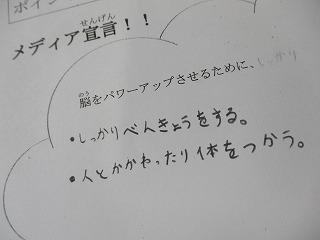 ポイン
せんげん
メディア宣言！！
のう
脳をパワーアップさせるために、しっかり
・しっかりべんきょうをする。
・人とかかわったり体をつかう。